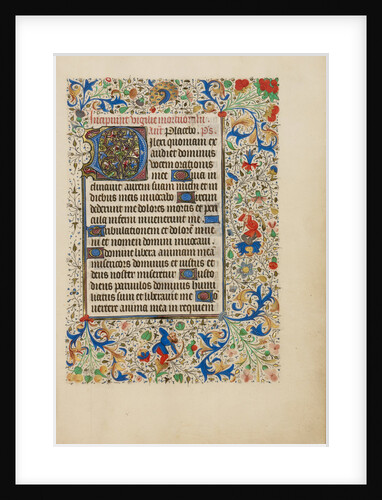 Incipiunt vigilie mortuorum
Placebo Ps
Dilexi quoniam ex
audiet dominus
vocem orationis
mee Quia in
clinauit aurem suam michi et in
diebus meis inuocabo
dederunt me dolores mortis et peri
cula inferni inuenerunt me
Tribulationem et dolorem inueni
et nomen domini inuocaui
O domine libera animam meam
misericors dominus et iustus et
deus noster miseretur Custo
diens paruulos dominus humi
liatus sum et liberauit me Con
uertere anima mea in requiem